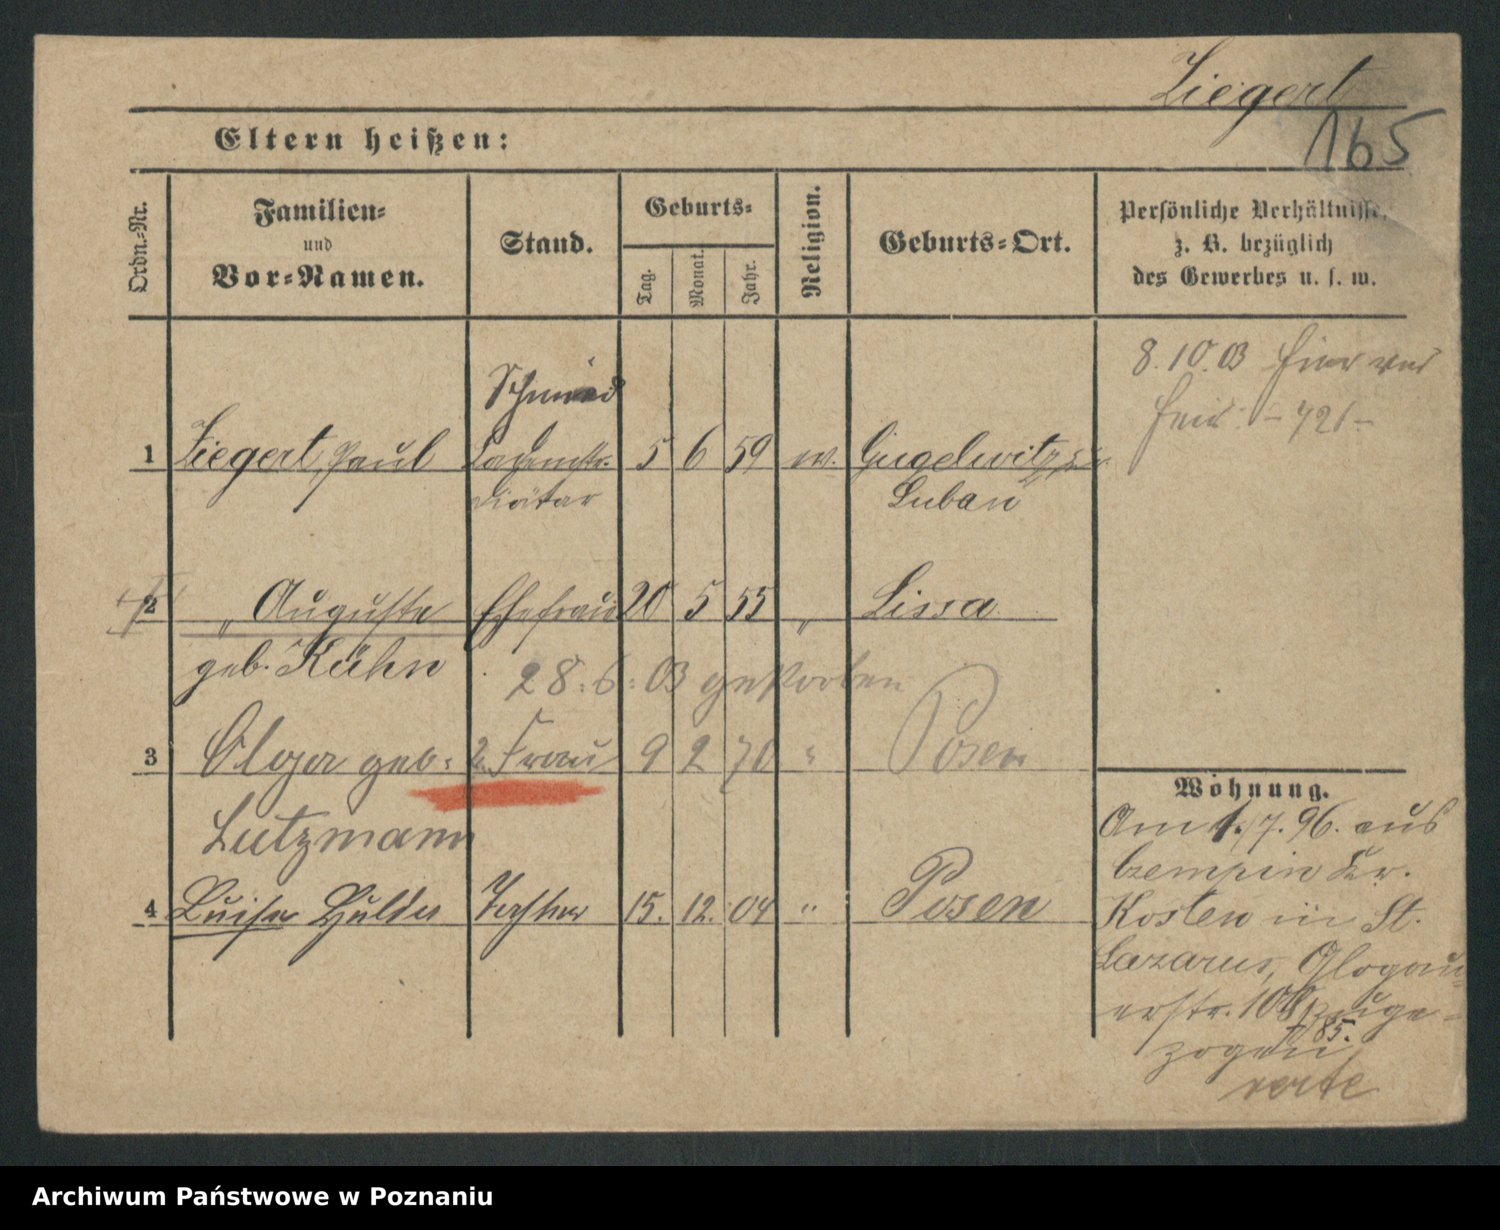 Ziegert
165
Eltern heißen:
Ordn.-Nr.
Familien-
und
Vor-Namen.
Stand.
Geburts-
Tag.
Monat.
Jahr.
Religion.
Geburts-Ort.
Persönliche Verhältnisse,
z. B. bezüglich
des Gewerbes u. s. w.
8.10.03
Schmied
1 Ziegert, Paul 5 6 59 ev. Gugelwitz
diätar Luban
2 " Auguste Ehefrau 20 5 55 " Lissa
geb. Kühn
28.6.03 gestorben
3 Olga geb. 2. Frau 9 2 70 " Posen
Lutzmann
4 Luise Hulda Tochter 15. 12. 04 " Posen
Wohnung.
Am 1./7. 96. aus
Czempin Kr.
Kosten in St.
Lazarus, Glogau-
erstr. 108 zuge-
zogen
85.
verte
Archiwum Państwowe w Poznaniu